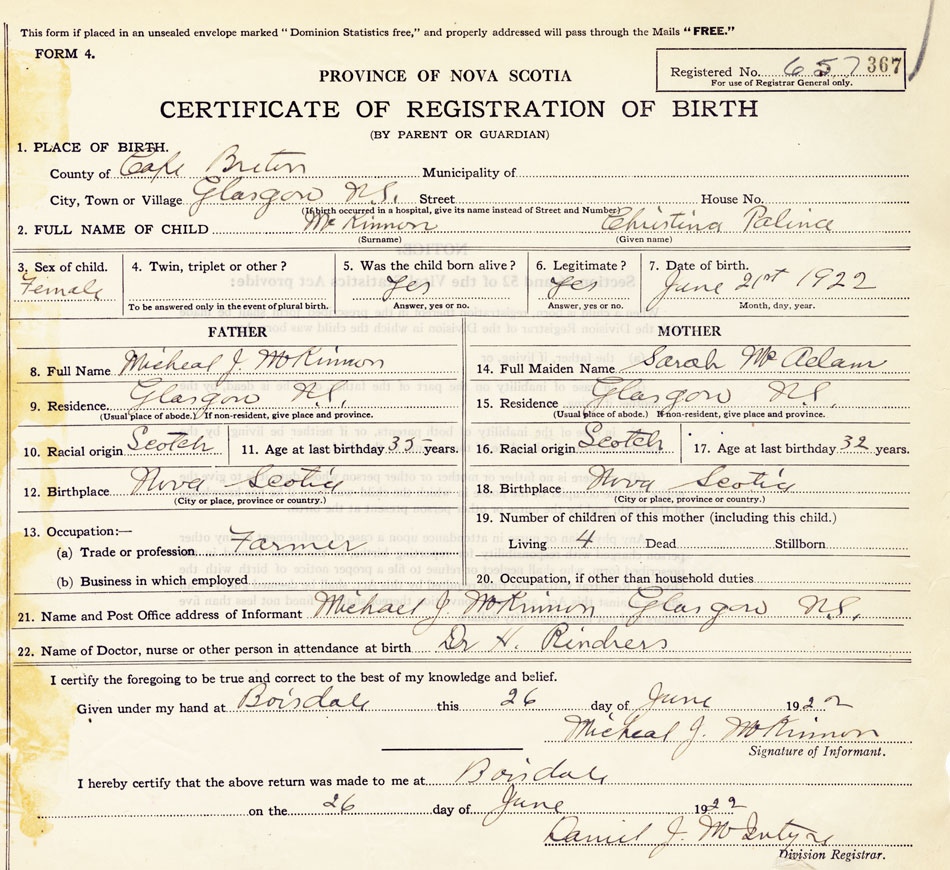 This form if placed in an unsealed envelope marked "Dominion Statistics free," and properly addressed will pass through the Mails "FREE."
FORM 4.
Registered No. 657 367
For use of Registrar General only.
PROVINCE OF NOVA SCOTIA
CERTIFICATE OF REGISTRATION OF BIRTH
(BY PARENT OR GUARDIAN)
1. PLACE OF BIRTH.
County of Cape Breton Municipality of
City, Town or Village Glasgow N.S. Street House No.
(If birth occurred in a hospital, give its name instead of Street and Number)
2. FULL NAME OF CHILD McKinnon Christina Palina
(Surname) (Given name)
3. Sex of child. 4. Twin, triplet or other? 5. Was the child born alive? 6. Legitimate? 7. Date of birth.
Female Yes Yes June 21st 1922
To be answered only in the event of plural birth. Answer, yes or no. Answer, yes or no. Month, day, year.
FATHER
8. Full Name Micheal J. McKinnon
9. Residence Glasgow N.S.
(Usual place of abode.) If non-resident, give place and province.
10. Racial origin Scotch 11. Age at last birthday 35 years.
12. Birthplace Nova Scotia
(City or place, province or country.)
13. Occupation:—
(a) Trade or profession Farmer
(b) Business in which employed
MOTHER
14. Full Maiden Name Sarah McAdam
15. Residence Glasgow N.S.
(Usual place of abode.) If non-resident, give place and province.
16. Racial origin Scotch 17. Age at last birthday 32 years.
18. Birthplace Nova Scotia
(City or place, province or country.)
19. Number of children of this mother (including this child.)
Living 4 Dead Stillborn
20. Occupation, if other than household duties
21. Name and Post Office address of Informant Michael J. McKinnon Glasgow N.S.
22. Name of Doctor, nurse or other person in attendance at birth Dr H.
I certify the foregoing to be true and correct to the best of my knowledge and belief.
Given under my hand at Boisdale this 26 day of June 1922
Micheal J. McKinnon
Signature of Informant.
I hereby certify that the above return was made to me at Boisdale
on the 26 day of June 1922
Daniel J. McIntyre
Division Registrar.